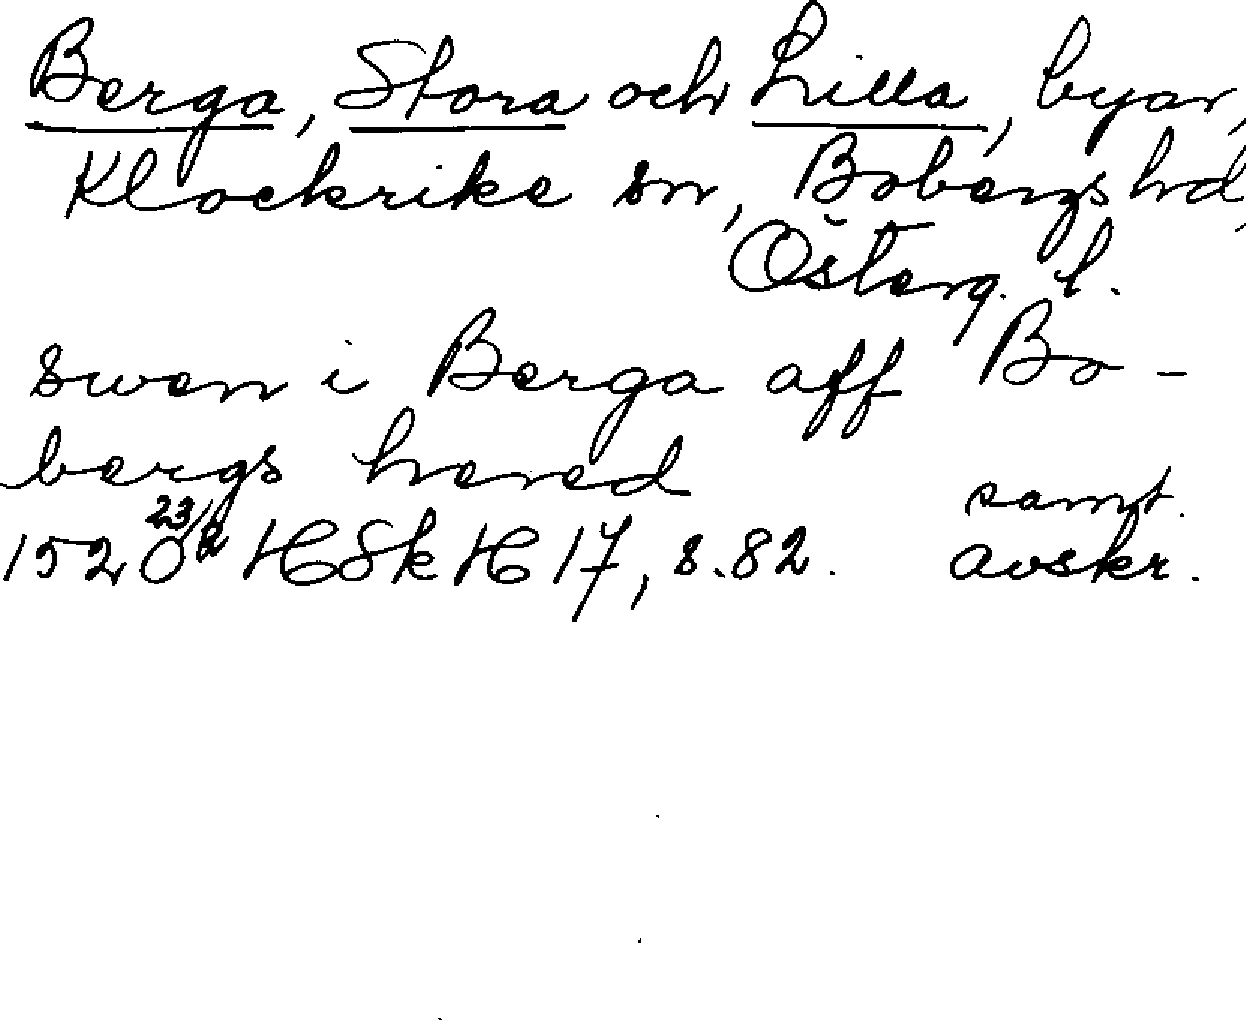 Berga, Stora och Lilla, byar,
Klockrike sn, Bobergs hd,
Österg. l.
swen i Berga aff Bo-
bergs hered
samt.
1520 23/2 HSk H 17, s. 82. avskr.